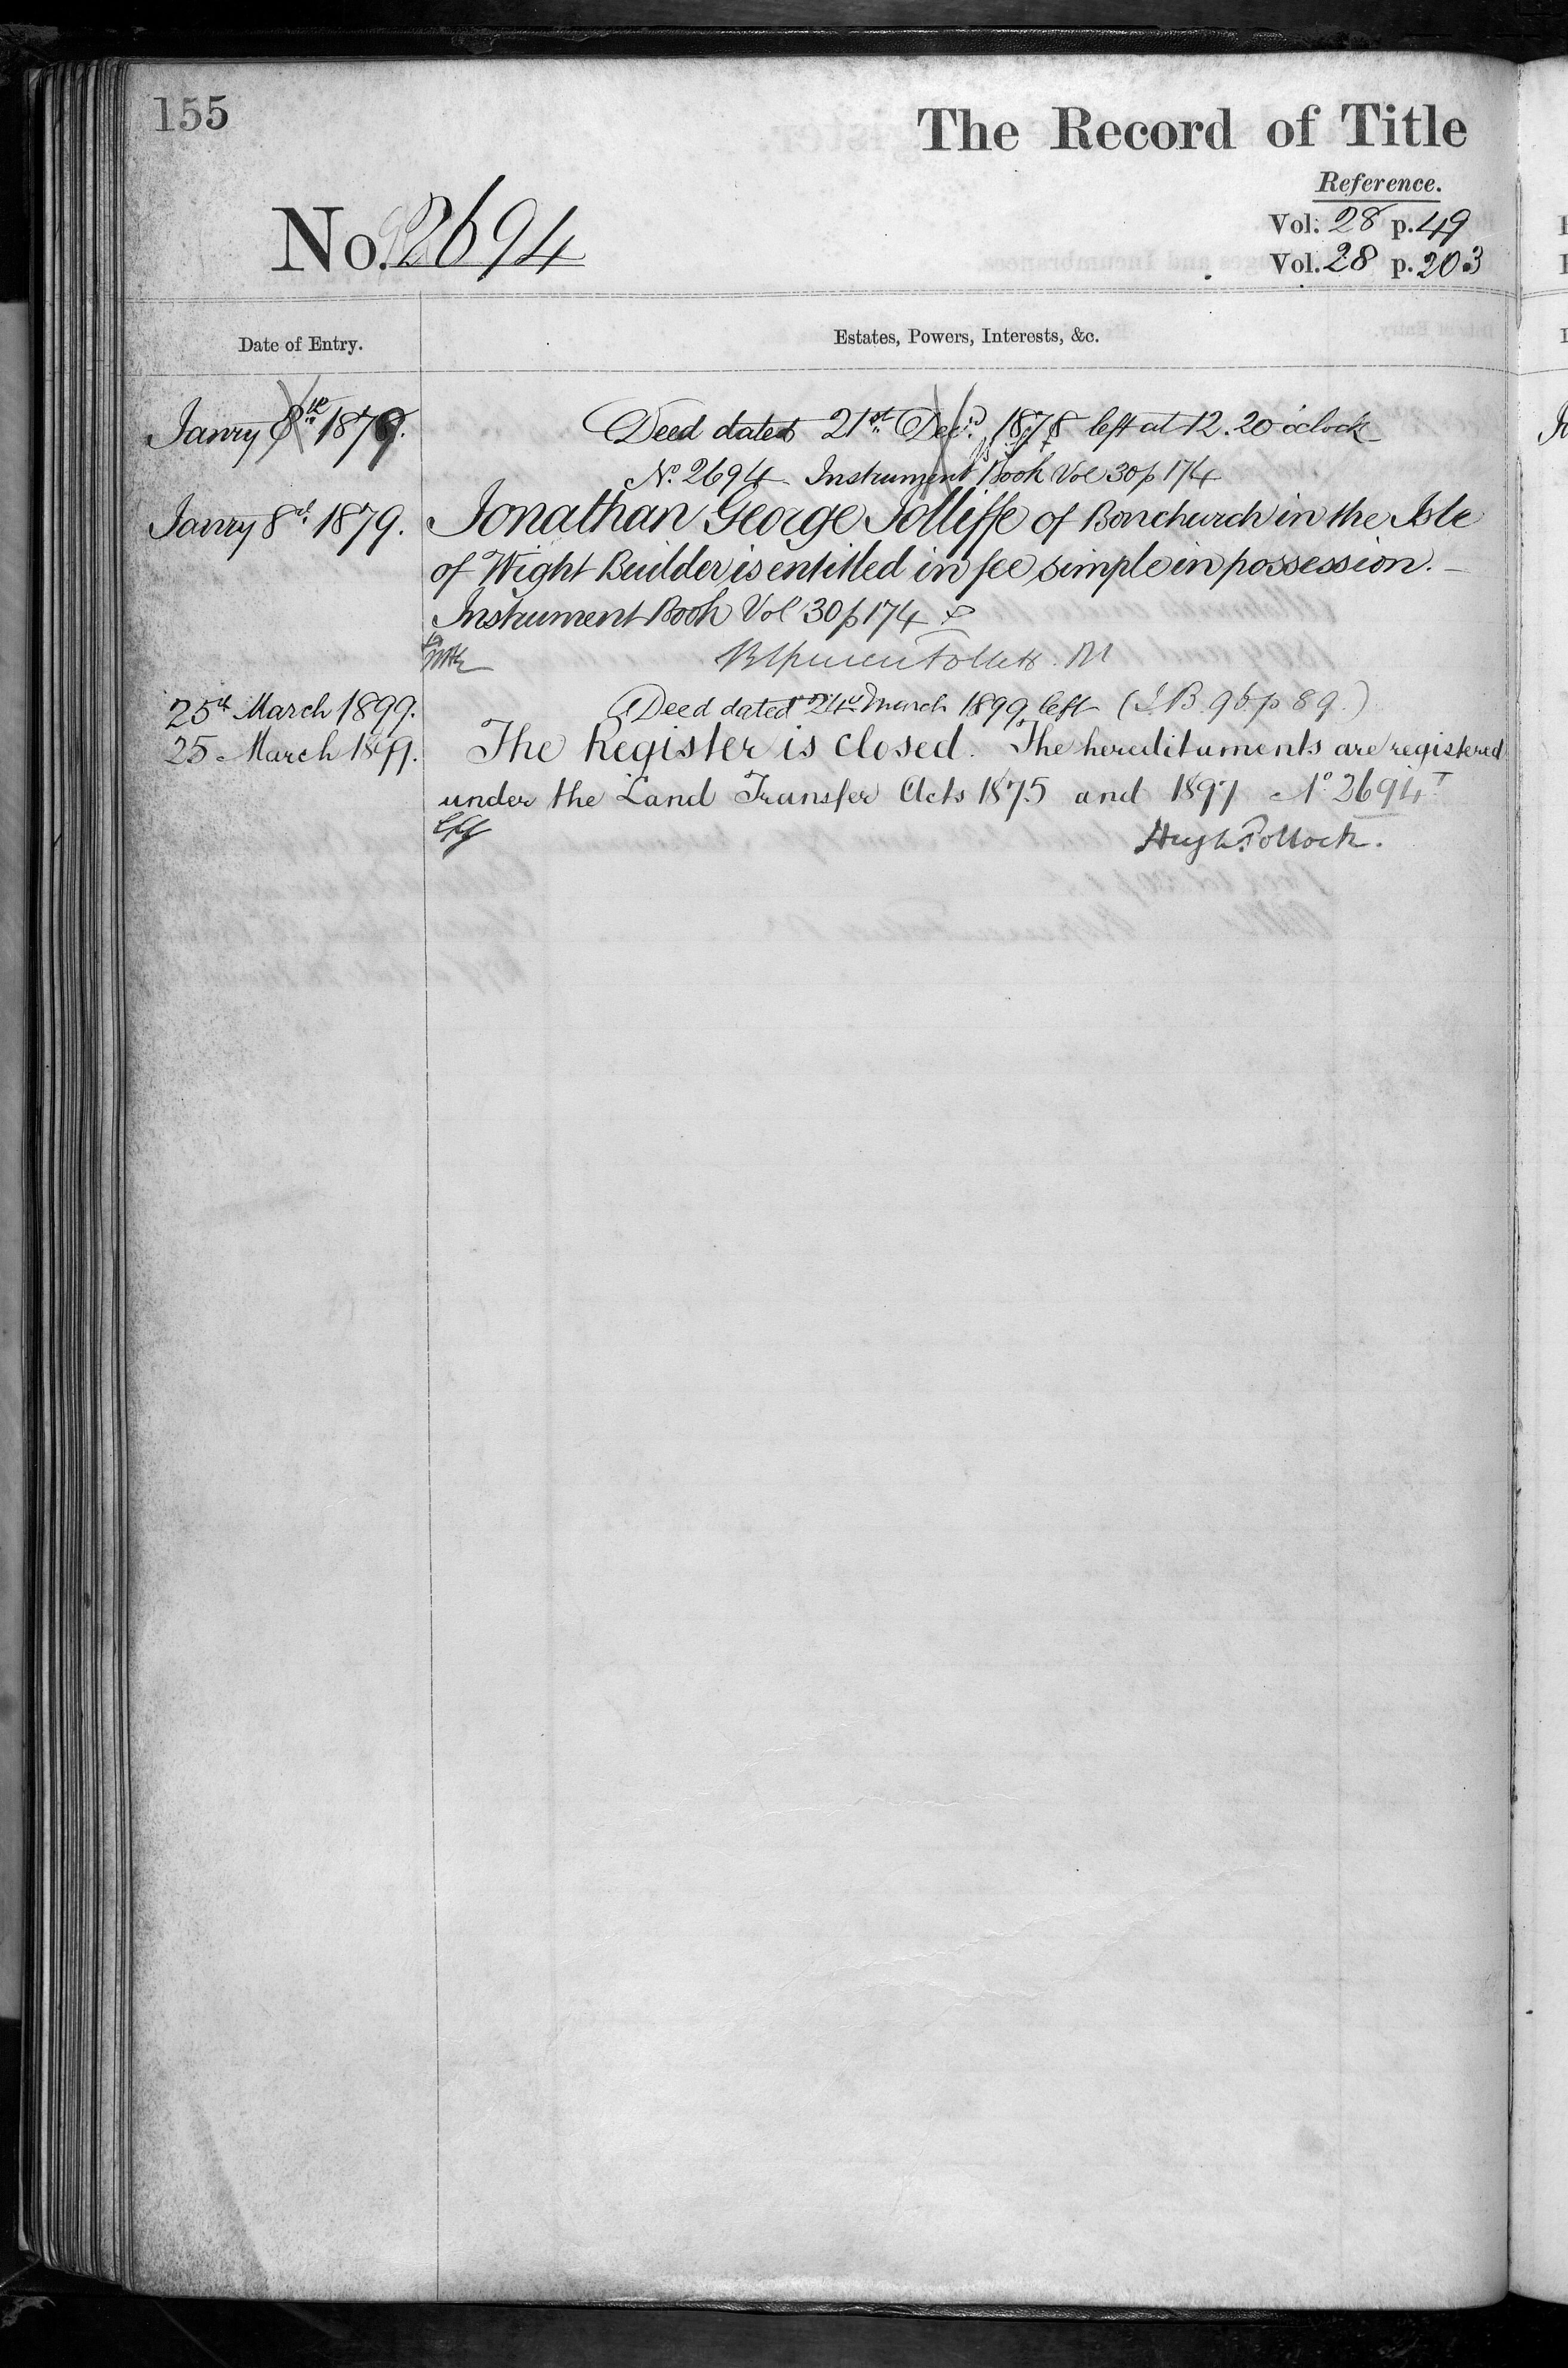 155
The Record of Title
Reference.
No. 2694
Vol. 28 p. 49
Vol. 28 p. 203
Date of Entry.
Estates, Powers, Interests, &c.
Janry 8th 1879.
Deed dated 21st Decr 1878 left at 12.20 o'clock
No. 2694 Instrument Book Vol 30 p 174
Janry 8th 1879.
Jonathan George Jolliffe of Bonchurch in the Isle
of Wight Builder is entitled in fee simple in possession. –
Instrument Book Vol 30 p 174
25th March 1899.
Deed dated 24th March 1899 left (I.B. 96 p 89.)
25 March 1899.
The Register is closed. The hereditaments are registered
under the Land Transfer Acts 1875 and 1897 No 2694 T
Hugh Pollock.